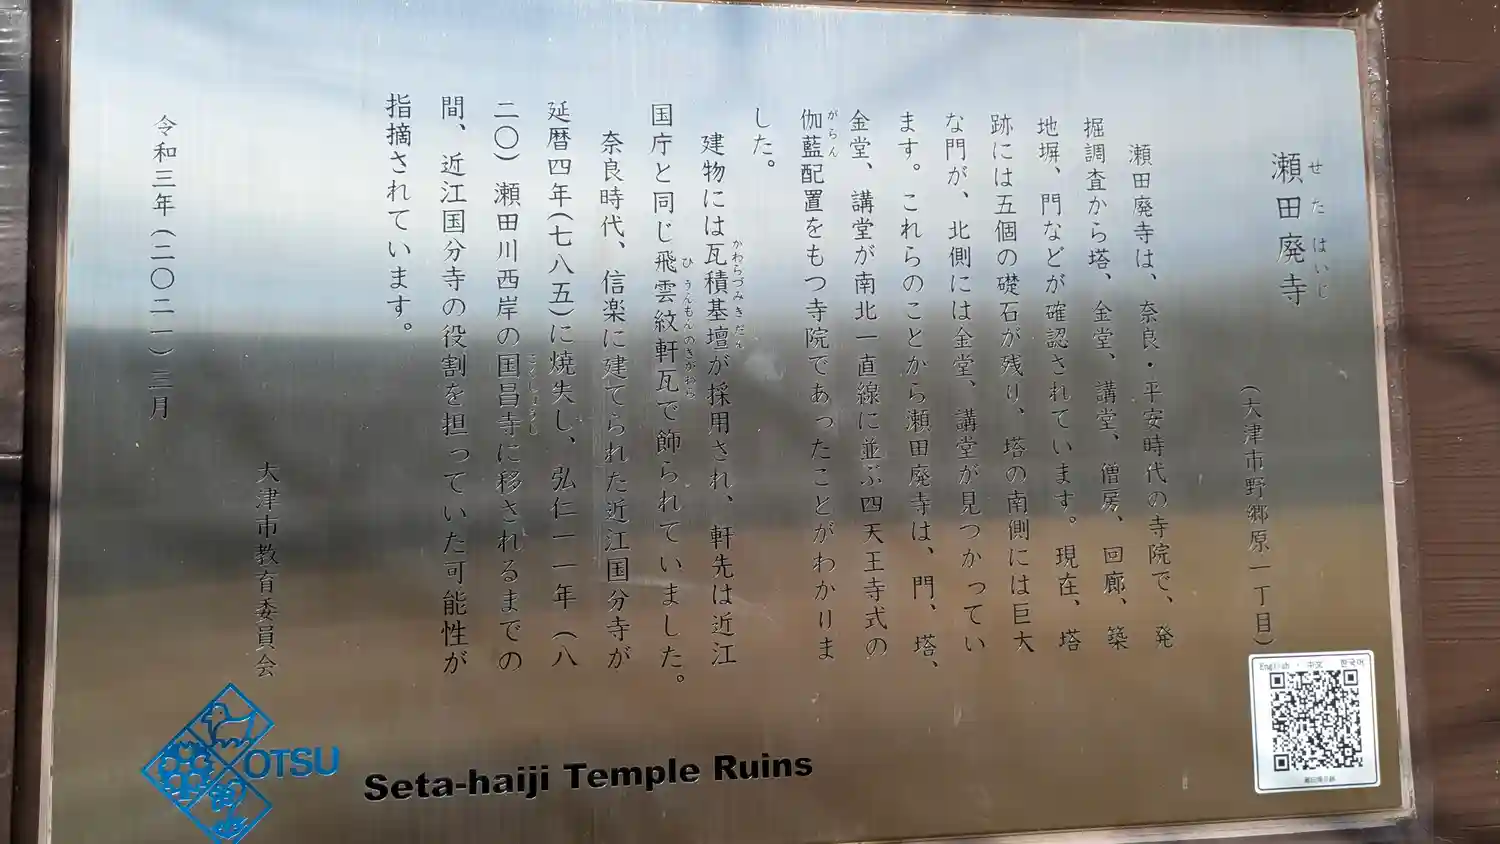 瀬田廃寺
せたはいじ
(大津市野郷原一丁目)
瀬田廃寺は、奈良・平安時代の寺院で、発
掘調査から塔、金堂、講堂、僧房、回廊、築
地塀、門などが確認されています。現在、塔
跡には五個の礎石が残り、塔の南側には巨大
な門が、北側には金堂、講堂が見つかってい
ます。これらのことから瀬田廃寺は、門、塔、
金堂、講堂が南北一直線に並ぶ四天王寺式の
伽藍配置をもつ寺院であったことがわかりま
がらん
した。
建物には瓦積基壇が採用され、軒先は近江
かわらづみきだん
国庁と同じ飛雲紋軒瓦で飾られていました。
ひうんもんのきがわら
奈良時代、信楽に建てられた近江国分寺が
延暦四年(七八五)に焼失し、弘仁一一年(八
二〇)瀬田川西岸の国昌寺に移されるまでの
こくしょうじ
間、近江国分寺の役割を担っていた可能性が
指摘されています。
大津市教育委員会
令和三年(二〇二一)三月
OTSU
Seta-haiji Temple Ruins
English・中文 한국어